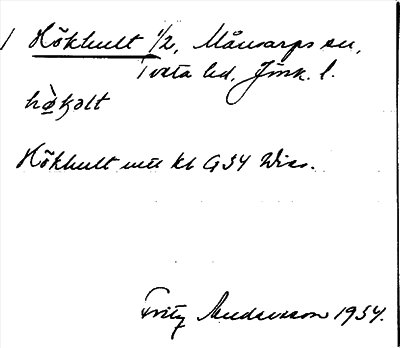 / Hökhult 1/2, Månsarps sn,
Tveta hd, Jönk. l.
hø̀kəlt
Hökhult utt kl G34 Diss.
Fritz Andersson 1934.